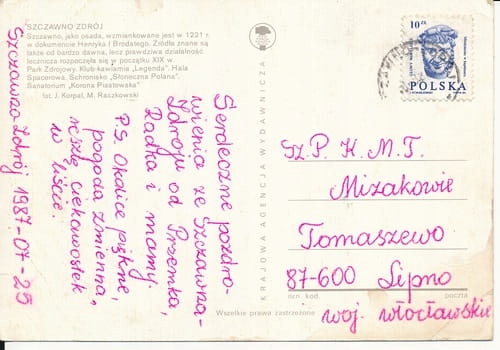 SZCZAWNO ZDRÓJ
Szczawno, jako osada, wzmiankowane jest w 1221 r.
w dokumencie Henryka I Brodatego. Źródła znane są
także od bardzo dawna, lecz prawdziwa działalność
lecznicza rozpoczęła się w początku XIX w.
Park Zdrojowy. Klub-kawiarnia „Legenda". Hala
Spacerowa. Schronisko „Słoneczna Polana".
Sanatorium „Korona Piastowska"
fot. J. Korpal, M. Raczkowski
Szczawno-Zdrój 1987-07-25
Serdeczne pozdro-
wienia ze Szczawna-
Zdroju od Przemka,
Radka i mamy.
P.S. Okolice piękne,
pogoda zmienna,
resztę ciekawostek
w liście.
KRAJOWA AGENCJA WYDAWNICZA
10 zł
POLSKA
Sz. P. K. M. T.
Mizakowie
Tomaszewo
87-600 Lipno
nrn. kod
poczta
woj. włocławskie
Wszelkie prawa zastrzeżone